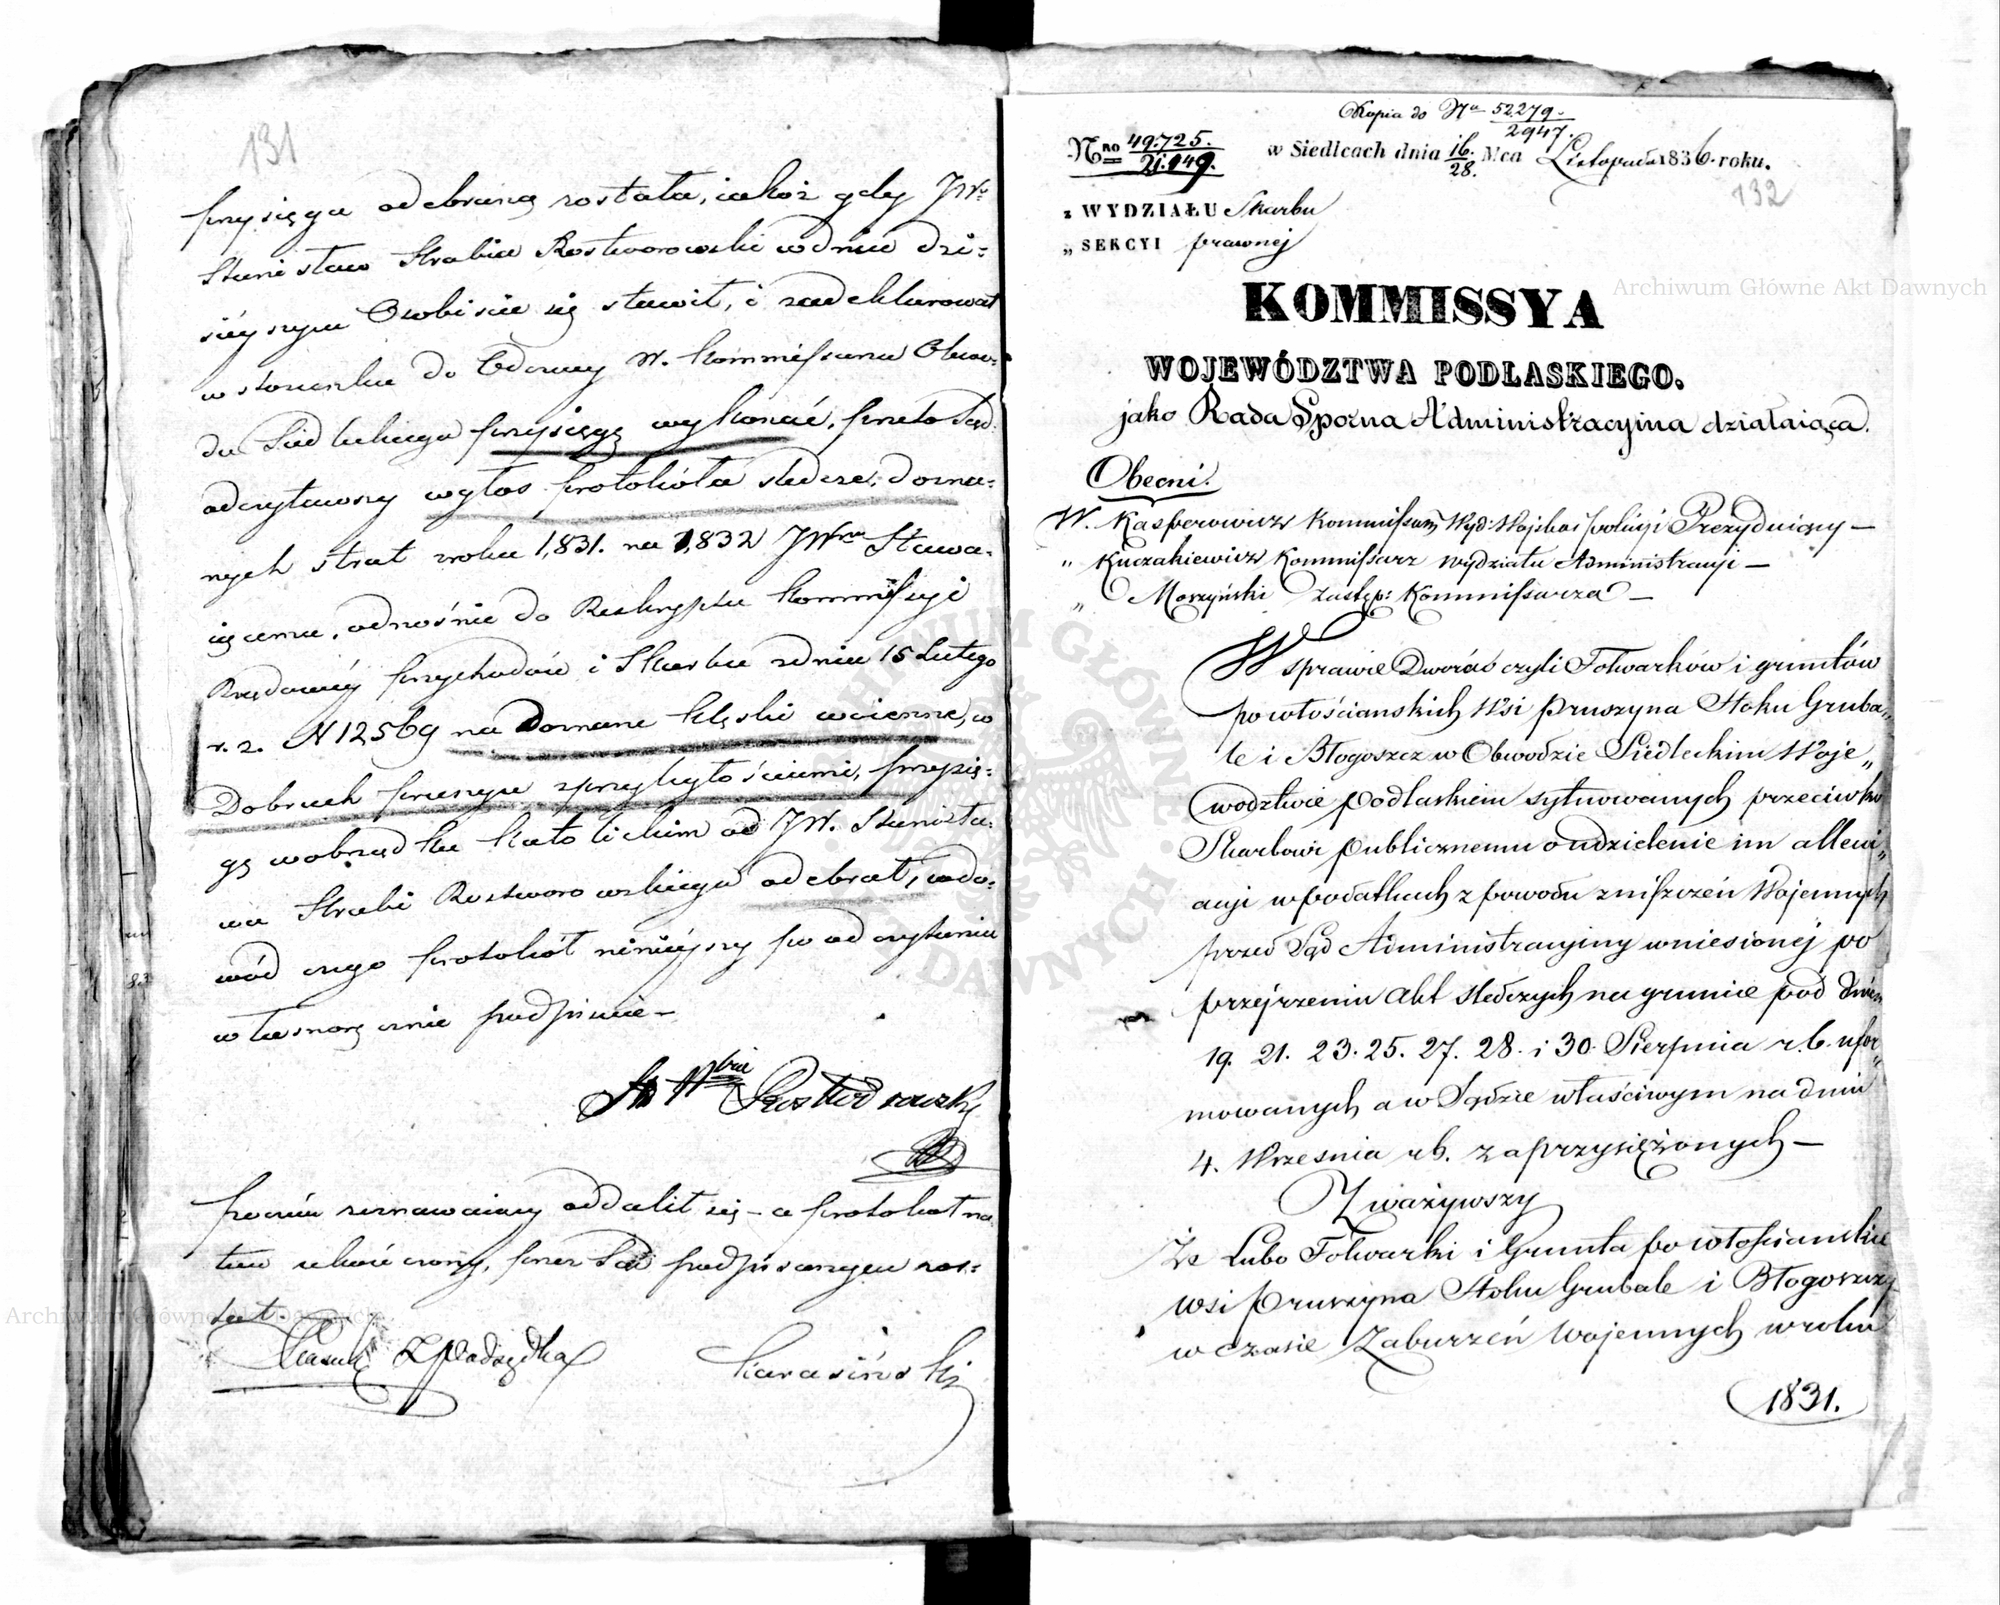 131
przysięga odebraną została, iakoż gdy JW.
Stanisław Hrabia Rostworowski w dniu dzi=
sieyszym Osobiscie się stawił, i zadeklarował
w stosunku do Odezwy W. Kommissarza Obwo=
du Siedleckiego przysięgę wykonać, przeto Sąd
odczytawszy w głos protokóła sledcze, dozna=
nych strat zroku 1,831. na 1,832 JWmu Stawa=
iącemu, odnośnie do Reskryptu Kommissyi
Rządowey przychodów i Skarbu zdnia 15 Lutego
r. z. N 12569 na Doznane klęski woienne, w
Dobrach pruszyn zprzyległościami, przysię=
gę wobrządku katolickim od JW. Stanisła=
wa Hrabi Rostworowskiego odebrał, wdo=
wód czego protokół ninieyszy po odczytaniu
własnoręcznie podpisuie —
St Hrbia Rostworowski
poczém zeznawaiący oddalił się — a protokół na
tem ukończony, przez Sąd podpisanym zos=
tał
Z Podsędka
Karasiński
Kopia do Nru 52279.
2947.
Nro 49.725.
21.149.
w Siedlcach dnia 16./28. Mca Listopada 1836 roku.
132
z WYDZIAŁU Skarbu
„ SEKCYI prawnej
KOMMISSYA
WOJEWÓDZTWA PODLASKIEGO.
jako Rada Sporna Administracyina działaiąca.
Obecni.
W. Kasperowicz Kommissarz Wyd: Wojska i policyi Prezyduiący —
„ Kuczakiewicz Kommissarz Wydziału Administracyi —
„ Morzyński Zastęp: Kommissarza —
W sprawie Dworów czyli Folwarków i gruntów
powłościanskich Wsi Pruszyna Stoku Gruba„
le i Błogoszcz w Obwodzie Siedleckim Woje„
wodztwie Podlaskiem sytuowanych przeciwko
Skarbowi Publicznemu o udzielenie im allewi„
acyi w podatkach z powodu zniszczeń Wojennych
przed Sąd Administracyiny wniesionéj po
przejrzeniu akt sledczych na gruncie pod dniem
19. 21. 23. 25. 27. 28. i 30. Sierpnia r. b. ufor„
mowanych a w Sądzie właściwym na dniu
4. Wrzesnia r b. zaprzysiężonych —
Zważywszy
Że Lubo Folwarki i Grunta powłościanskie
wsi Pruszyna Stoku Grubale i Błogoszczy
w czasie Zaburzeń Wojennych w roku
1831.
KOMMISSYA
Archiwum Główne Akt Dawnych
ARCHIWUM GŁÓWNE AKT DAWNYCH
Archiwum Główne Akt Dawnych